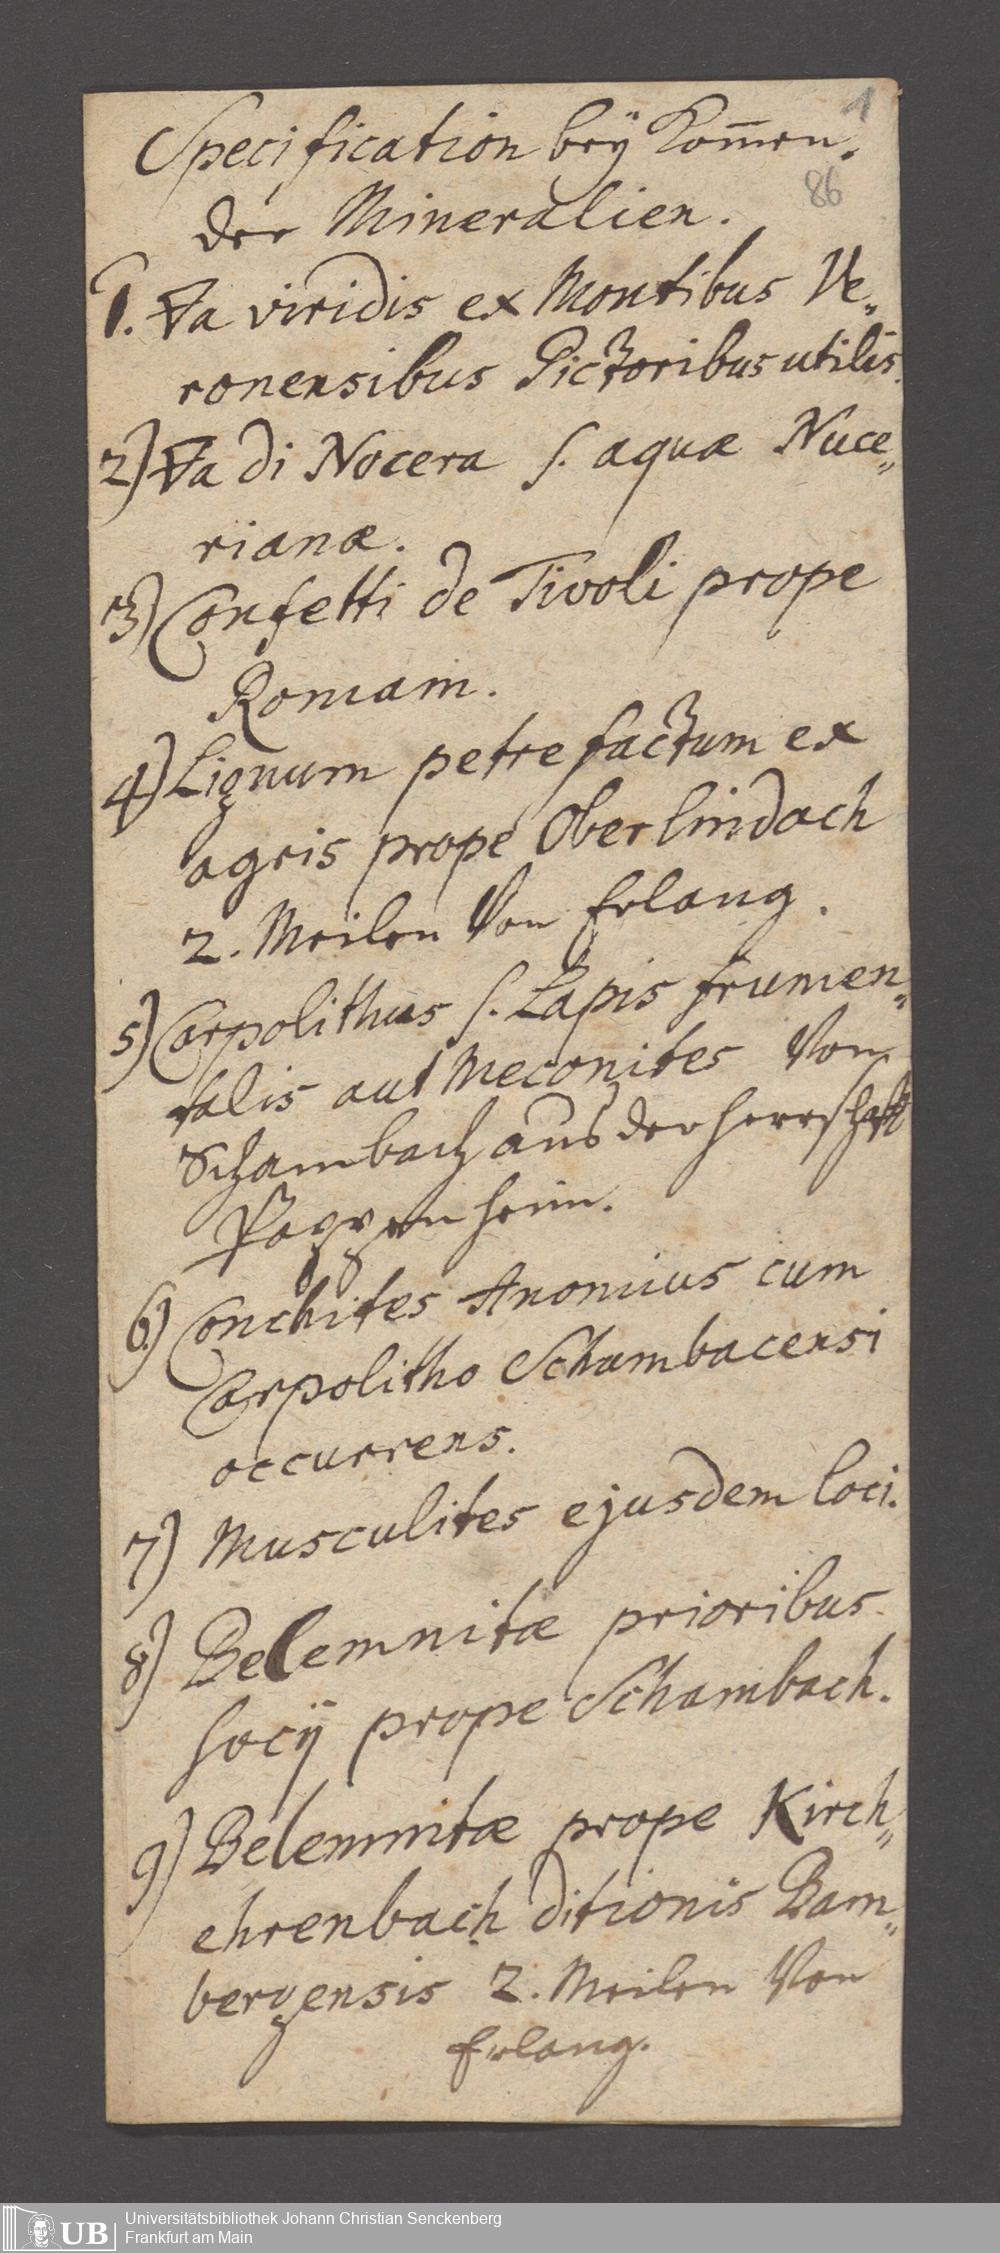 1
Specification bey kom̅en,
86
der Mineralien.
1. 🜃a viridis ex Montibus Ve„
ronensibus Pictoribus utilis.
2) 🜃a di Nocera s. aquæ Nuce„
rianæ.
3) Confetti de Tivoli prope
Romam.
4) Lignum petrefactum ex
agris prope Oberlindach
2. Meilen Von Erlang.
5) Carpolithus s. Lapis frumen„
talis aut Meconites Von
Schambach aus der Herrschafft
Pappenheim.
6.) Conchites Anomius cum
Carpolitho Schambacensi
occurrens.
7) Musculites ejusdem loci.
8) Belemnitæ prioribus
socÿ prope Schambach.
9) Belemnitæ prope Kirch„
ehrenbach ditionis Bam„
bergensis 2. Meilen Von
Erlang.
UB
Universitätsbibliothek Johann Christian Senckenberg
Frankfurt am Main